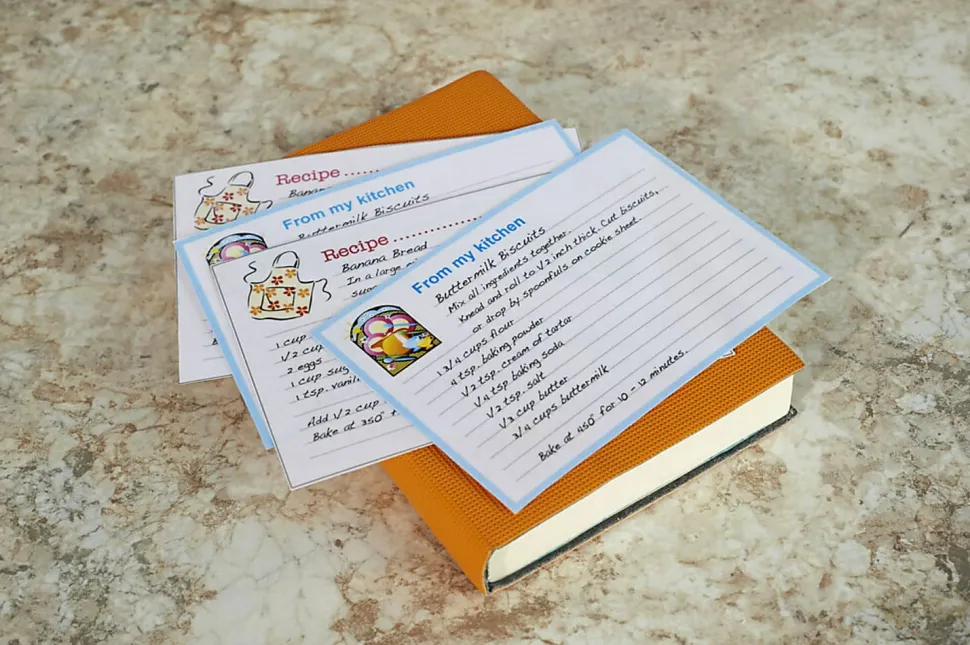 Recipe......
Banana
From my kitchen
Buttermilk Biscuits
Recipe...........
Banana Bread
In a large
1 cup
1/2 cup
2 eggs
1 cup
1 tsp.
Add 1/2 cup
Bake at 350°
From my kitchen
Buttermilk Biscuits
Mix all ingredients together.
Knead and roll to 1/2 inch thick. Cut biscuits,
or drop by spoonfuls on cookie sheet.
1 3/4 cups flour
4 tsp. baking powder
1/2 tsp. cream of tartar
1/4 tsp baking soda
1/2 tsp. salt
1/3 cup butter
3/4 cups buttermilk
Bake at 450° for 10-12 minutes.